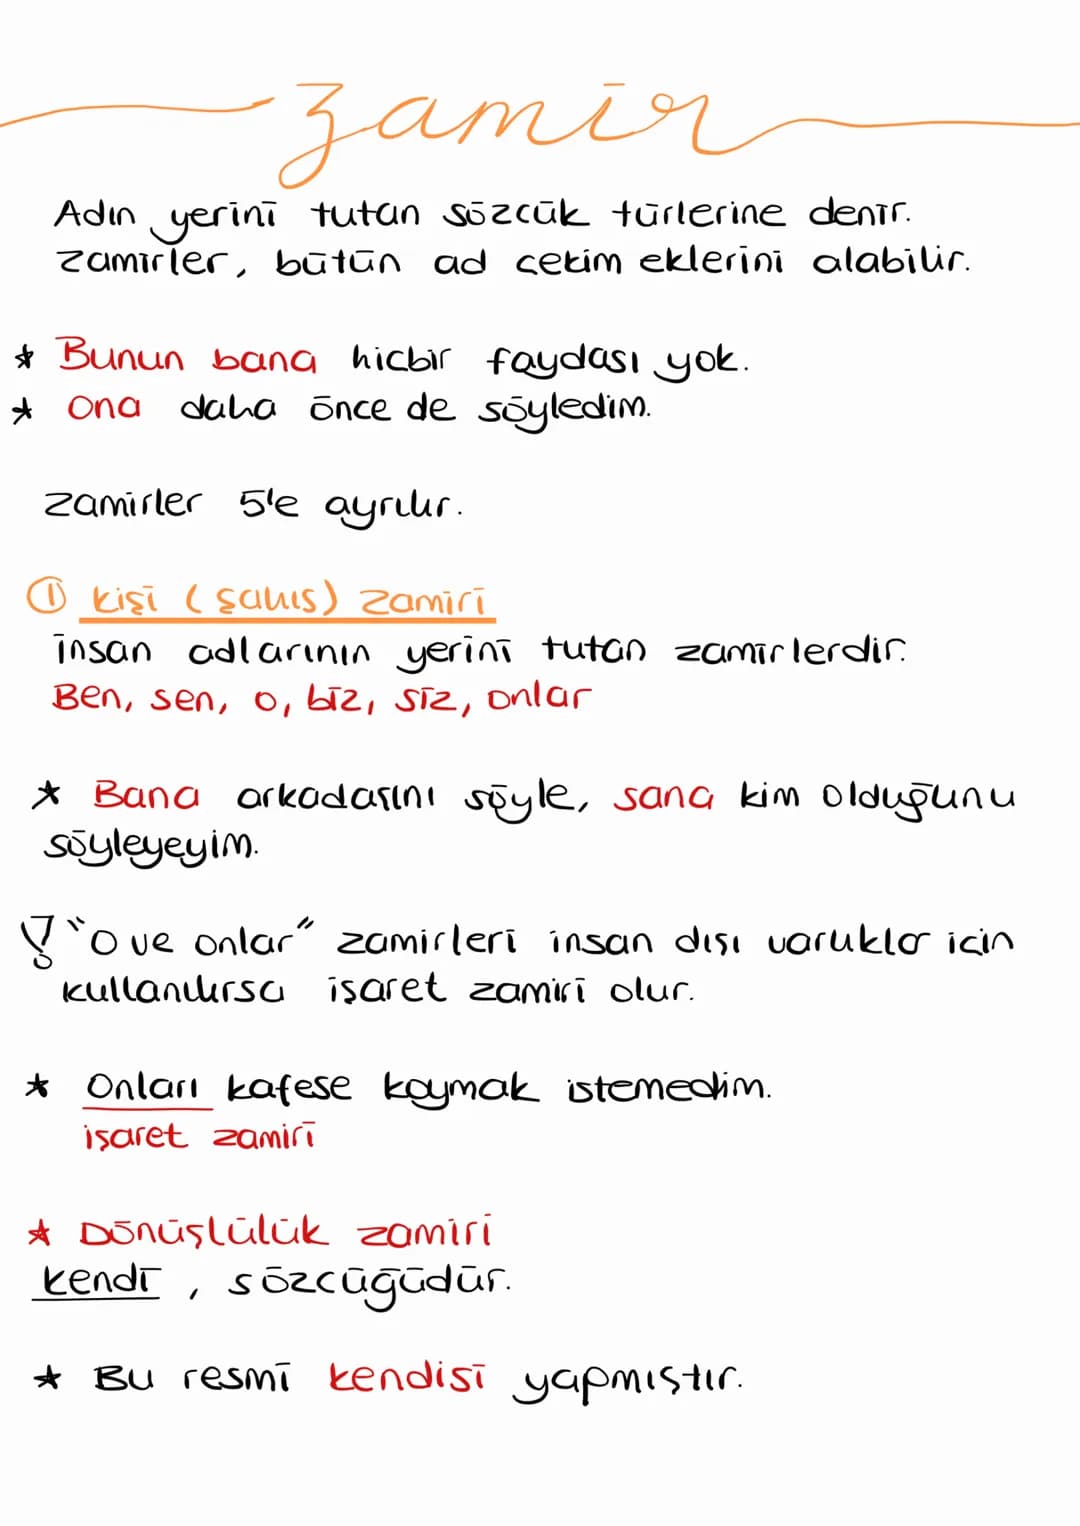 zamir
Adın yerini tutan sözcük türlerine denir.
zamirler, bütün ad çekim eklerini alabilir.
* Bunun bana hicbir faydası yok.
* Ona daha önce de söyledim.
zamirler 5'e ayrılır.
① kişi (şahıs) zamiri
insan adlarının yerini tutan zamirlerdir.
Ben, sen, o, biz, siz, onlar
* Bana arkadaşını söyle, sana kim olduğunu
söyleyeyim.
! "O ve onlar" zamirleri insan dışı varuklar için
kullanılırsa işaret zamiri olur.
* Onları kafese koymak istemedim.
işaret zamiri
* Dönüşlülük zamiri
kendi, sözcüğüdür.
* Bu resmi kendisi yapmıştır.